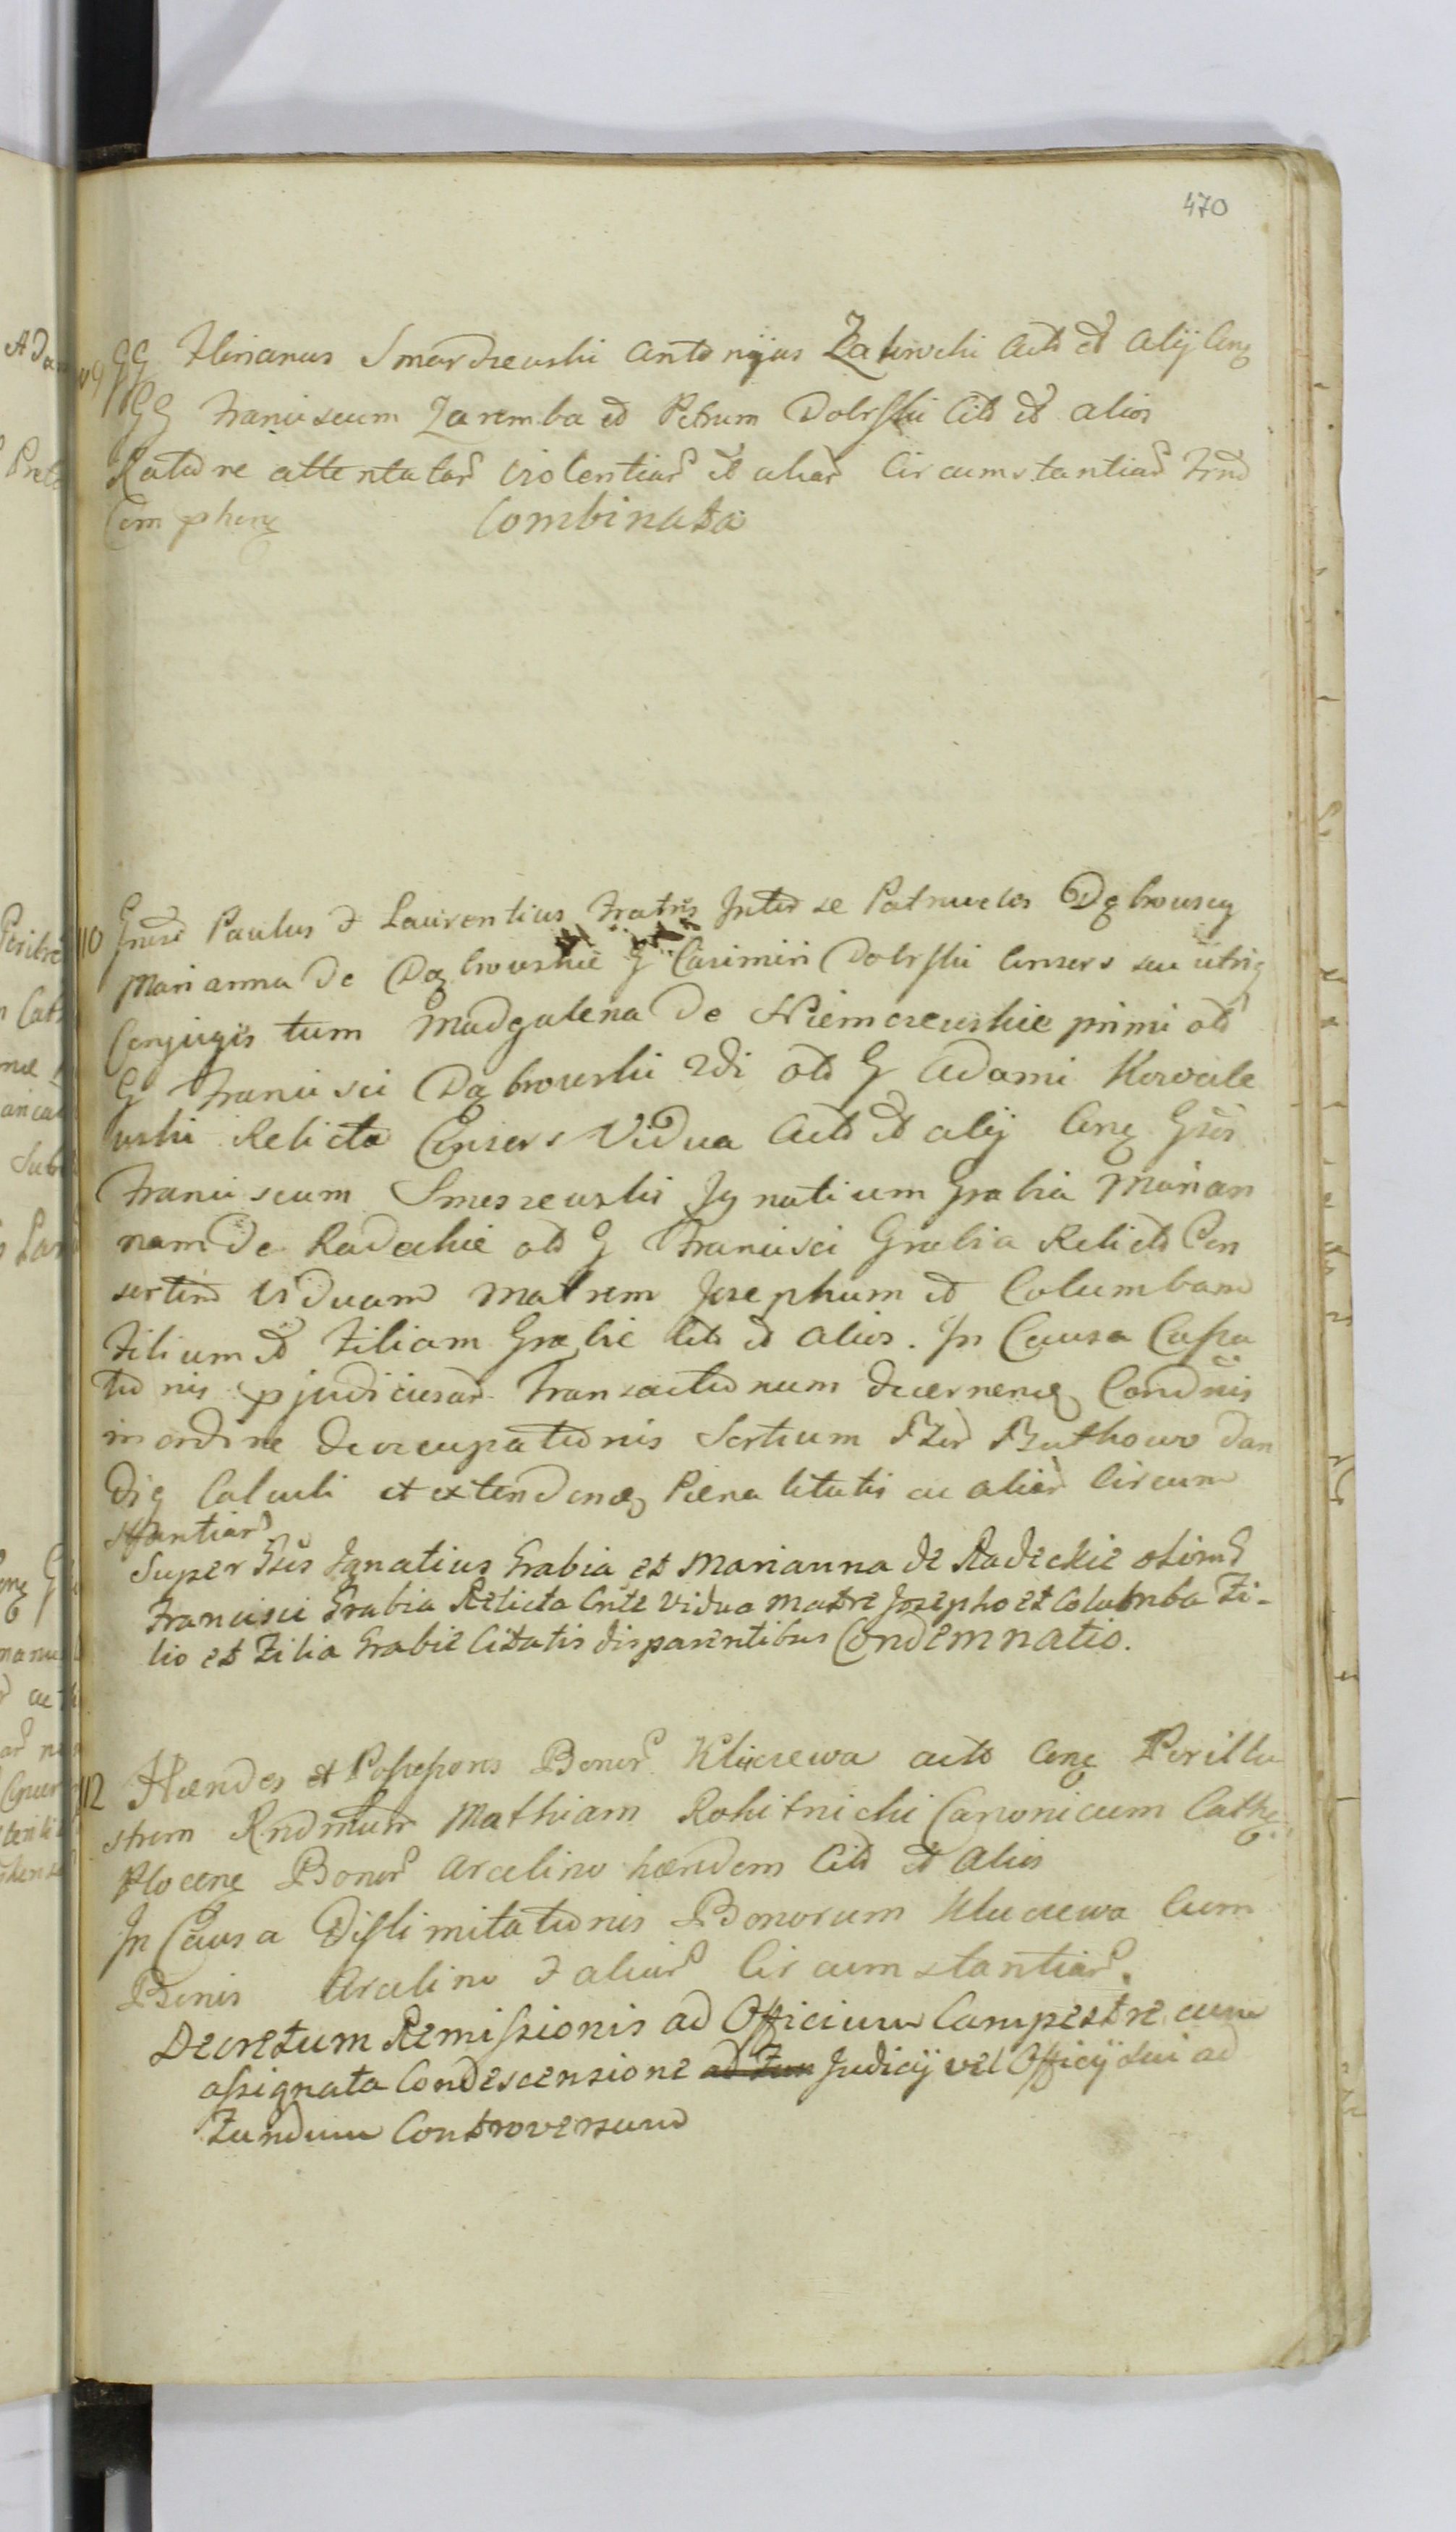 470
109 GG Florianus Smardzewski Antonijus Zakrochi Act et Alij Cnq
GG Franciscum Zaremba et Petrum Dobrski Cit et alios
Ratione attentatar violentiar et aliar Circumstantiar
Combinata
110 Gnsi Paulus & Laurentius Fratris Inter se Patrueles Dąbrowscy
Marianna de Dąbrowskie G Casimiri Dobrski Consors seu utriq
Conjugis tum Madgalena de Niemczewskie primi ol
G Francisci Dąbrowski 2di ol G Adami Kowale
wski Relicta Consors Vidua Act et alij Cnq Gsos
Franciscum Smeszewski Ignatium Grabia Marian
nam de Radeckie ol G Francisci Grabia Relict Con
sortem viduam Matrem Josephum et Columbam
Filium et Filiam Grabie Cit et Alios. In Causa Cassa
tionis pjudiciosar Transactionum decernene Condnis
in ordine deoccupationis Sortium Bor Bothowo dan
diq Calculi et extendenq Paenalitatis ac aliar Circum
stantiar
Super Gsis Ignatius Grabia et Marianna de Radeckie olim G
Francisci Grabia Relicta Cnte Vidua Matre Josepho et Columba Fi-
lio et Filia Grabie Citatis disparentibus Condemnatio.
112 Haeredes et Possessores Bonor Kluczewa act Cnq Perillu
strem Rndmum Mathiam Rokitnichi Canonicum Cathe
Plocenq Bonor Arcelino haeredem Cit et Alios
In Causa Dislimitationis Bonorum Kluczewa Cum
Bonis Arcelino & aliar Circumstantiar.
Decretum Remissionis ad Officium Campestre cum
assignata Condescensione ad Fun Judicij vel Officij sui ad
Fundum Controversum